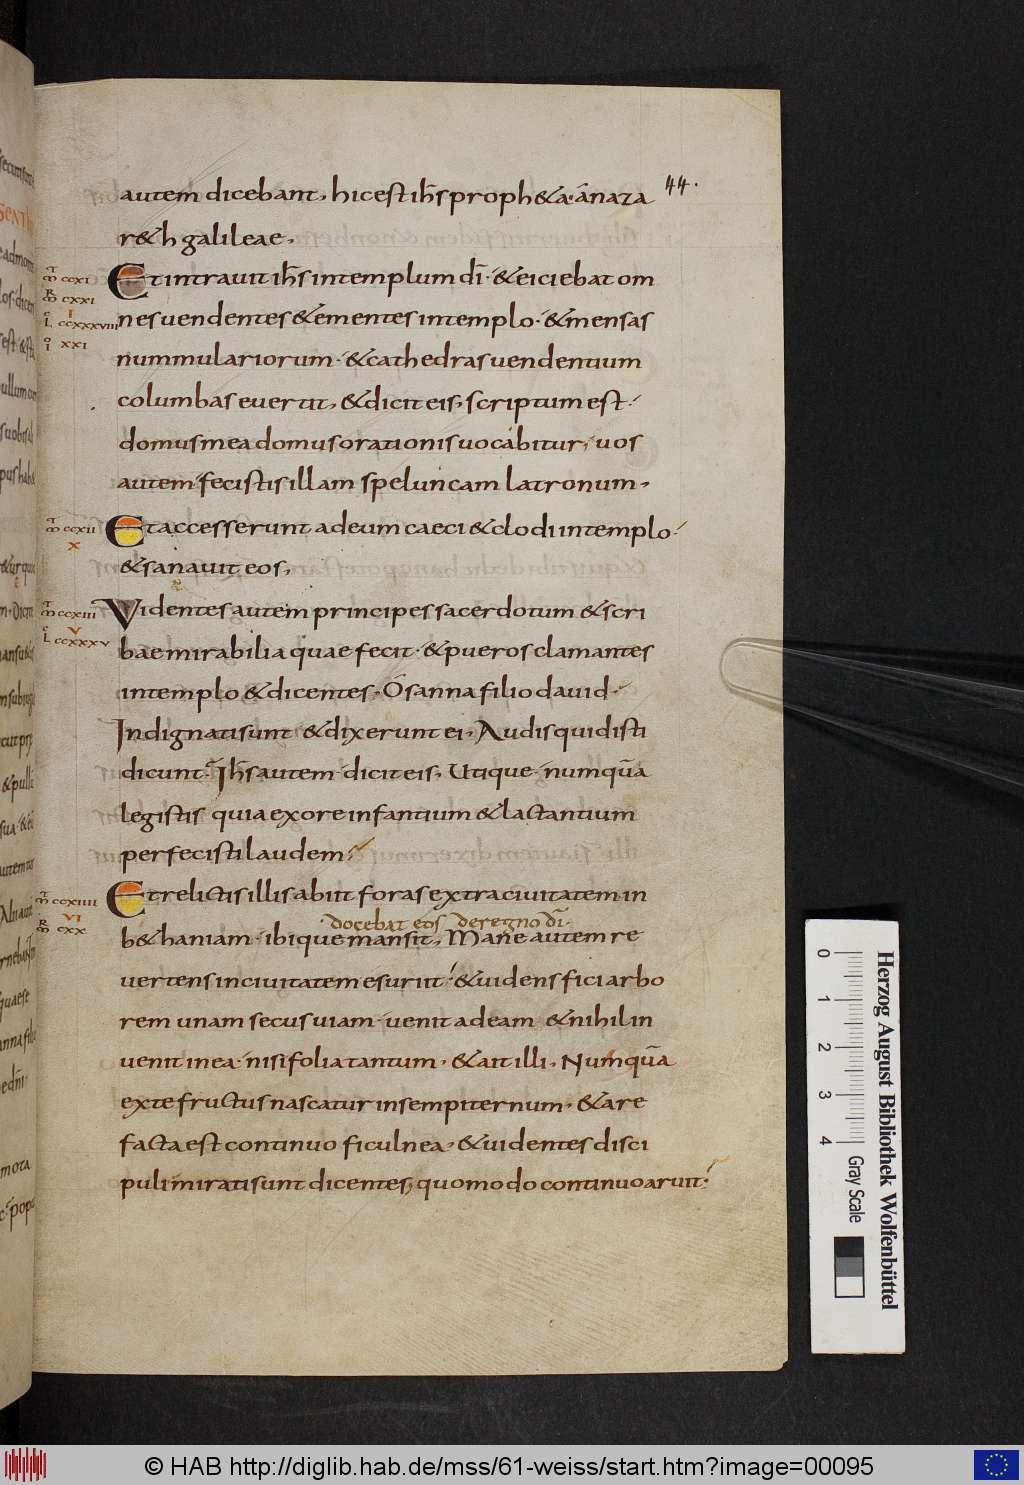 autem dicebant, hic est ihs proph&a· a naza 44·
r&h galileae,
Et intravit ihs in templum di· & eiciebat om
nes uendentes & ementes in templo· & mensas
nummulariorum· & cathedras uendentium
columbas euertit, & dicit eis, scriptum est·
domus mea domus orationis uocabitur, uos
autem fecistis illam speluncam latronum,
Et accesserunt ad eum caeci & clodi in templo·
& sanauit eos,
Videntes autem principes sacerdotum & scri
bae mirabilia quae fecit· & pueros clamantes
in templo & dicentes· Osanna filio dauid·
Indignati sunt & dixerunt ei, Audis quid isti
dicunt· Ihs autem dicit eis, Utique· numqua
legistis quia ex ore infantium & lactantium
perfecisti laudem·
Et relictis illis abiit foras extra ciuitatem in
docebat eos de regno di·
b&haniam· ibique mansit, Mane autem re
uertens in ciuitatem esuriit· & uidens fici arbo
rem unam secus uiam· uenit ad eam & nihil in
uenit in ea· nisi folia tantum, & ait illi, Numqua
ex te fructus nascatur in sempiternum, & are
facta est continuo ficulnea, & uidentes disci
puli mirati sunt dicentes, quomodo continuo aruit·
ccxi
cxxi
ccxxxviii
xxi
ccxii
x
ccxiii
v
ccxxxv
ccxiiii
vi
cxx
0 1 2 3 4
Gray Scale
Herzog August Bibliothek Wolfenbüttel
© HAB http://diglib.hab.de/mss/61-weiss/start.htm?image=00095